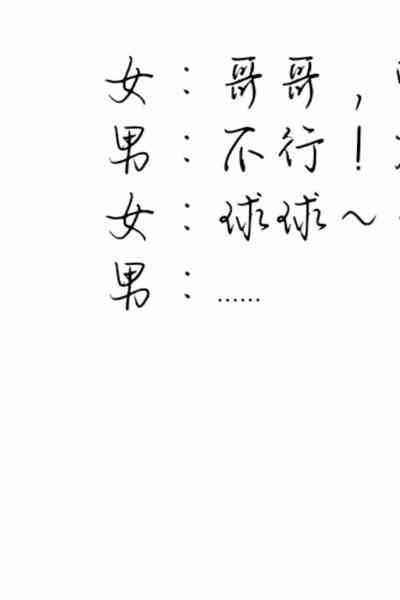 女：哥哥，
男：不行！
女：球球～
男：……